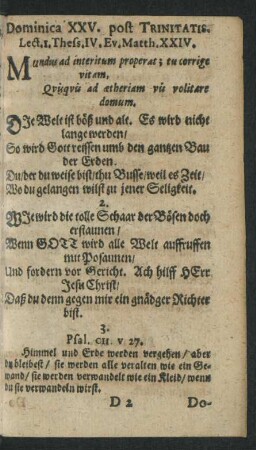 Dominica XXV. post TRINITATIS.
Lect. 1. Thess. IV. Ev. Matth. XXIV.
Mundus ad interitum properat; tu corrige
vitam,
Qvũqvũ ad ætheriam vis volitare
domum.
DJe Welt ist böß und alt. Es wird nicht
lange werden/
So wird Gott reissen umb den gantzen Bau
der Erden.
Du/der du weise bist/thu Busse/weil es Zeit/
Wo du gelangen wilst zu jener Seligkeit.
2.
WJe wird die tolle Schaar der Bösen doch
erstaunen/
Wenn GOTT wird alle Welt auffruffen
mit Posaunen/
Und fordern vor Gericht. Ach hilff HErr
Jesu Christ/
Daß du denn gegen mir ein gnädger Richter
bist.
3.
Psal. CII. v. 27.
Himmel und Erde werden vergehen/ aber
du bleibest/ sie werden alle veralten wie ein Ge-
wand/ sie werden verwandelt wie ein Kleid/ wenn
du sie verwandeln wirst.
D 2 Do-